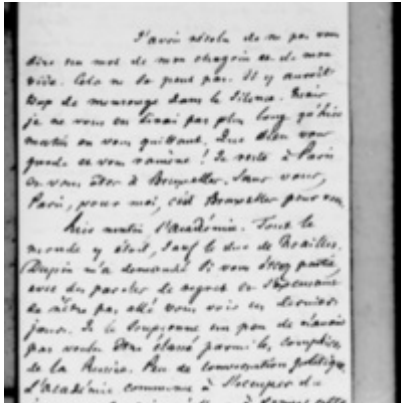 J'avois résolu de ne pas vous
dire un mot de mon chagrin et de mon
vide. Cela ne se peut pas. Il y auroit
trop de mensonge dans le silence. Mais
je ne vous en dirai pas plus long qu'hier
matin en vous quittant. Que Dieu vous
garde et vous ramène ! Je reste à Paris
et vous êtes à Bruxelles. Sans vous,
Paris, pour moi, c'est Bruxelles pour vous.
Hier matin l'Académie. Tout le
monde y étoit, sauf le duc de Noailles.
Dupin m'a demandé si vous étiez partie,
avec des paroles de regret et
de n'être pas allé vous voir ces derniers
jours. Je le soupçonne un peu de n'avoir
pas voulu être classé parmi les complices
de la Russie. Peu de conversation politique.
L'Académie commence à s'occuper du